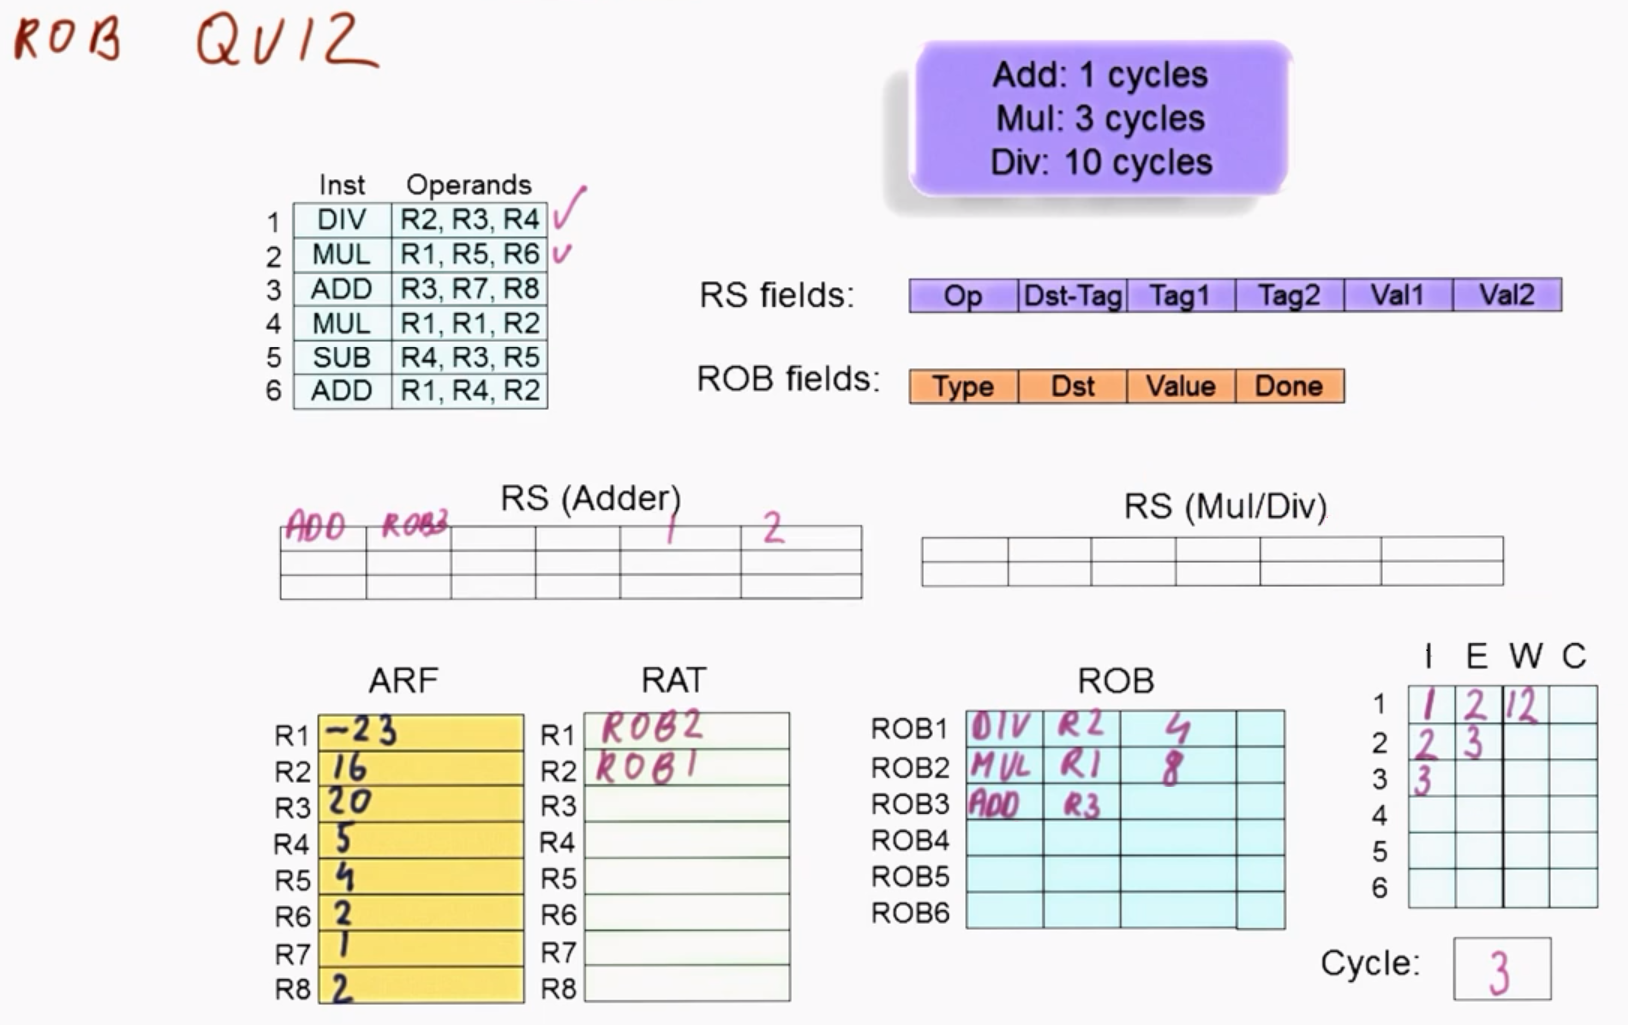 ROB QUIZ
Add: 1 cycles
Mul: 3 cycles
Div: 10 cycles
Inst Operands
1 DIV R2, R3, R4 ✓
2 MUL R1, R5, R6 ✓
3 ADD R3, R7, R8
4 MUL R1, R1, R2
5 SUB R4, R3, R5
6 ADD R1, R4, R2
RS fields: Op Dst-Tag Tag1 Tag2 Val1 Val2
ROB fields: Type Dst Value Done
RS (Adder)
ADD ROB3 1 2
RS (Mul/Div)
ARF
R1 -23
R2 16
R3 20
R4 5
R5 4
R6 2
R7 1
R8 2
RAT
R1 ROB2
R2 ROB1
R3
R4
R5
R6
R7
R8
ROB
ROB1 DIV R2 4
ROB2 MUL R1 8
ROB3 ADD R3
ROB4
ROB5
ROB6
I E W C
1 1 2 12
2 2 3
3 3
4
5
6
Cycle: 3